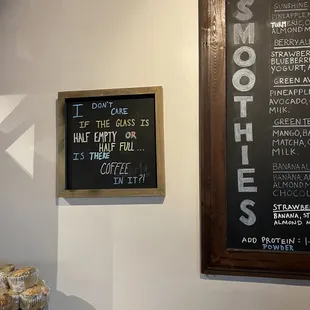 I DON'T CARE
IF THE GLASS IS
HALF EMPTY OR
HALF FULL...
IS THERE
COFFEE
IN IT?!
SMOOTHIES
SUNSHINE
PINEAPPLE,
TURMERIC, O
ALMOND M
BERRY AL
STRAWBER
BLUEBERR
YOGURT, A
GREEN AV
PINEAPPLE
AVOCADO,
MILK.
GREEN TE
MANGO, BA
MATCHA,
MILK.
BANANA AL
BANANA, A
ALMOND M
CHOCOL
STRAWBE
BANANA, ST
ALMOND M
ADD PROTEIN: 1
POWDER